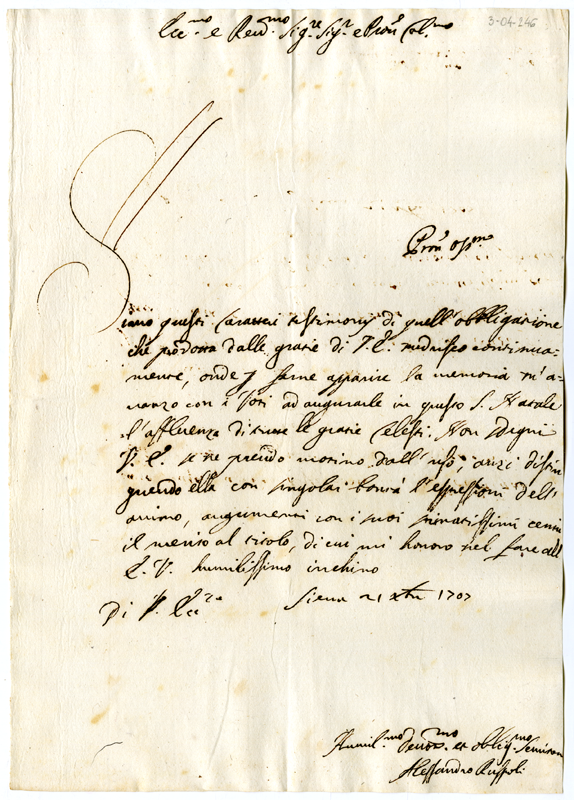 3-04-246
Ecc.mo e Rev.mo Sig.re Sig.r e Pron Col.mo
Pron oss.mo
Siano questi caratteri testimonij di quell'obbligazione
che prodotta dalle grazie di V. E. continua-
mente, onde p farne apparire la memoria m'a-
vanzo con i Voti ad augurarle in questo S. Natale
l'affluenza di tutte le grazie Celesti. Non sdegni
V. E. se ne prendo motivo dall'uso, anzi distin
guendo ella con singolar bontà l'espressioni dell'
animo, augumenti con i suoi stimatissimi cenni
il merito al titolo, di cui mi honoro nel fare all'
E. V. humilissimo inchino
Di V. Ecc.za Siena 21 xbre 1707
Humil.mo devot.mo et oblig.mo Servitore
Alessandro Ruspoli